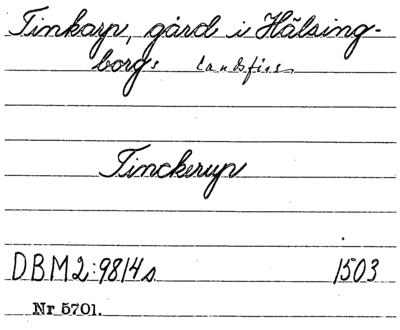 Tinkarp, gård i Hälsing-
borgs landsförs
Tinckerup
DBM2:9814s 1503
Nr 5701.